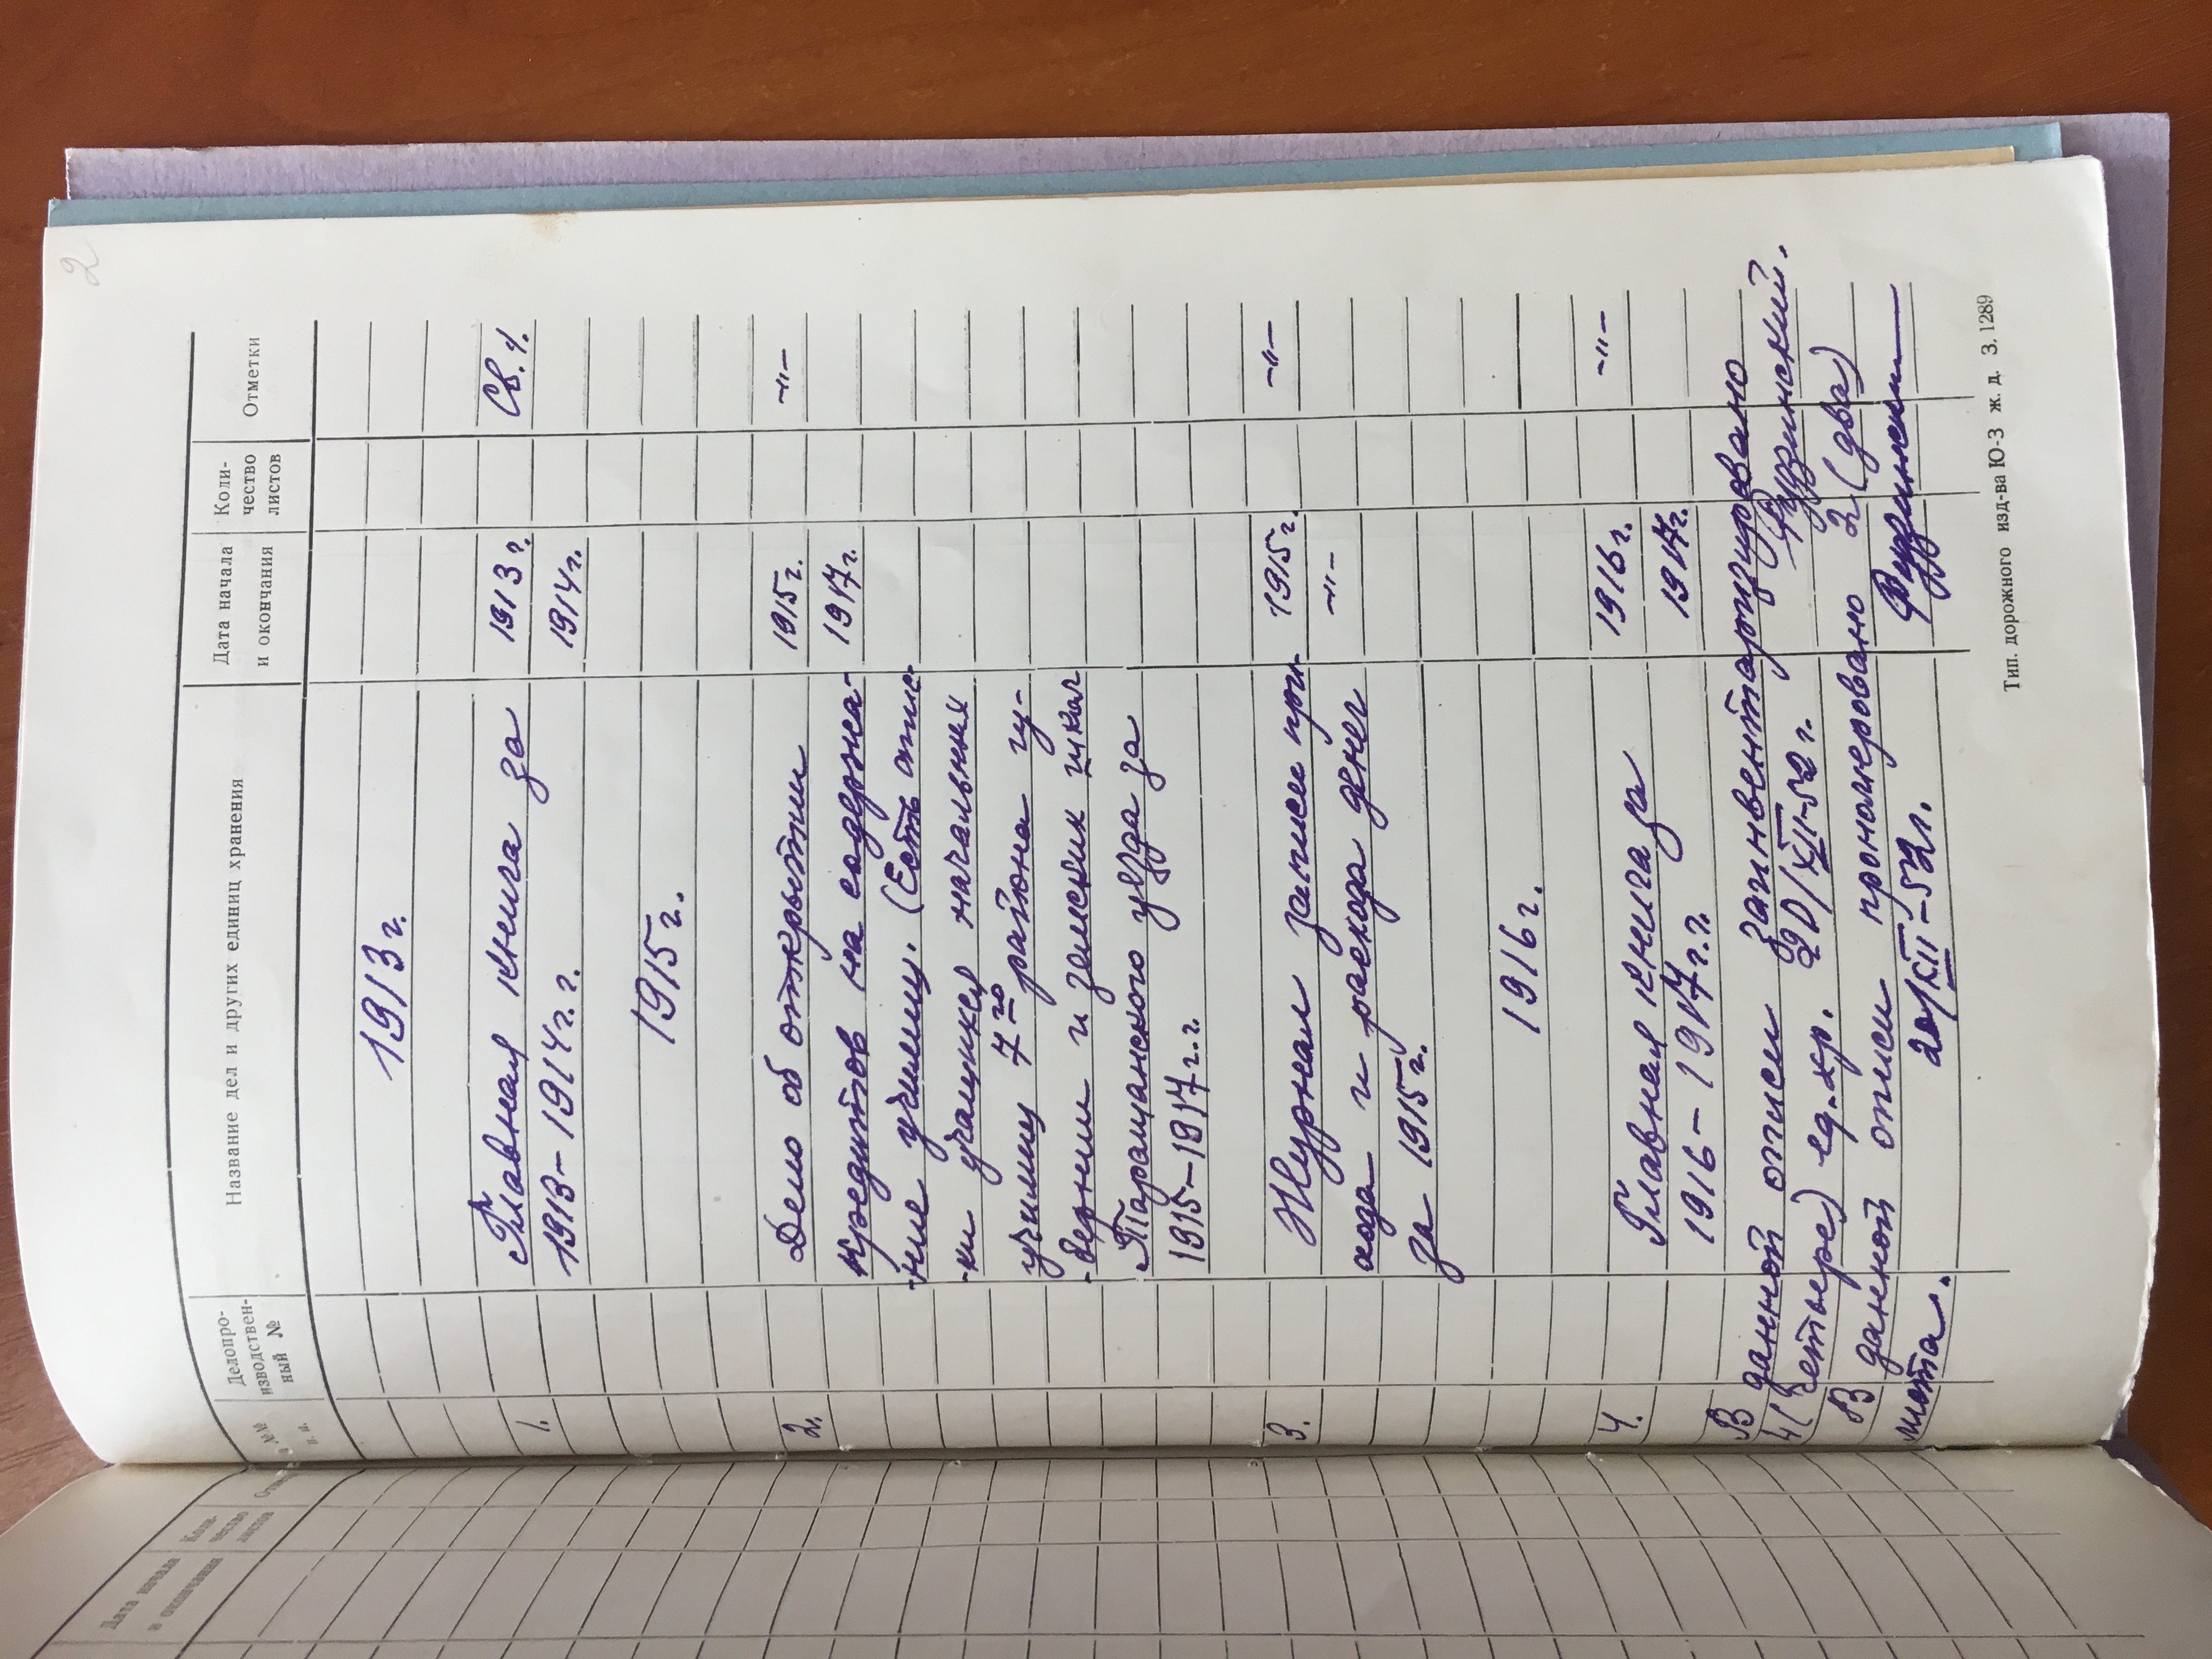 2
№№ п. п.
Делопро-
изводствен-
ный №
Название дел и других единиц хранения
Дата начала
и окончания
Коли-
чество
листов
Отметки
1913 г.
1. Главная книга за 1913 г. Св. 1.
1913–1914 г. г. 1914 г.
1915 г.
2. Дело об открытии 1915 г. –"–
кредитов на содержа- 1917 г.
-ние училищ. (Есть спис-
-ки учащихся начальных
училищ 7го района гу-
-бернии и земских школ
Таращанского уезда за
1915–1917 г. г.
3. Журнал записи при- 1915 г. –"–
хода и расхода денег –"–
за 1915 г.
1916 г.
4. Главная книга за 1916 г. –"–
1916–1917 г. г. 1917 г.
В данной описи заинвентаризировано
4 (четыре) ед. хр. 20/XII-52 г.
В данной описи пронумеровано 2 (два)
листа. 20/XII-52 г.
Тип. дорожного изд-ва Ю-З ж. д. З. 1289
Дата начала
и окончания
Коли-
чество
листов